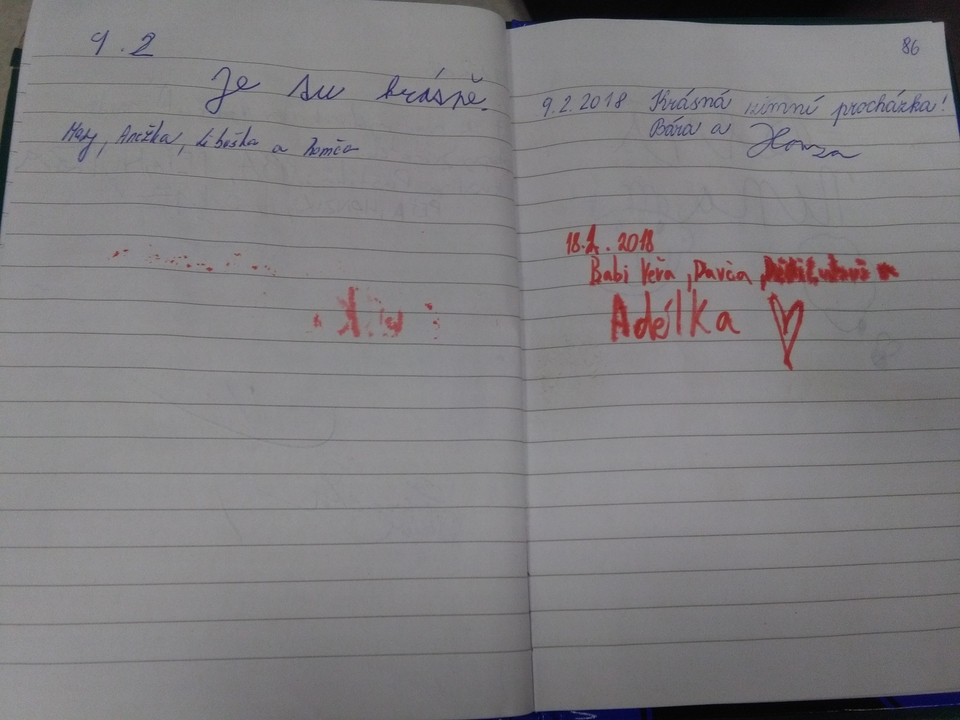 9.2
Je su krásně.
Mery, Anežka, Liboška a Romča
86
9.2.2018 Krásná zimní procházka!
Bára a Honza
18.2.2018
Babi Věra, Darča,
Adélka